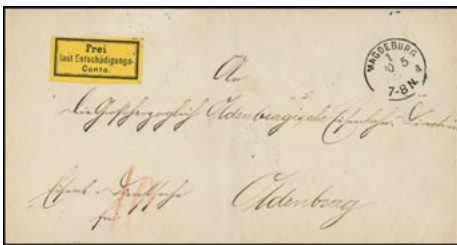 Frei
laut Entschädigungs-
Conto.
MAGDEBURG
1
10 5
4
7-8N.
An
die Großherzoglich Oldenburgische Eisenbahn-Direction
Eisenb.-Dienstsache
Oldenburg